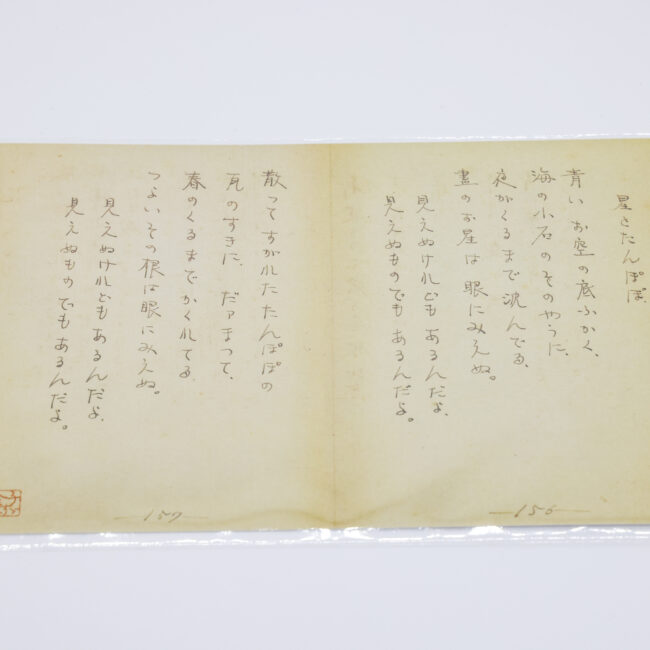 星とたんぽぽ
青いお空の底ふかく、
海の小石のそのやうに、
夜がくるまで沈んでる、
晝のお星は眼にみえぬ。
見えぬけれどもあるんだよ、
見えぬものでもあるんだよ。
—156—
散つてすがれたたんぽぽの
瓦のすきに、だァまつて、
春のくるまでかくれてる
つよいその根は眼にみえぬ。
見えぬけれどもあるんだよ、
見えぬものでもあるんだよ。
—157—